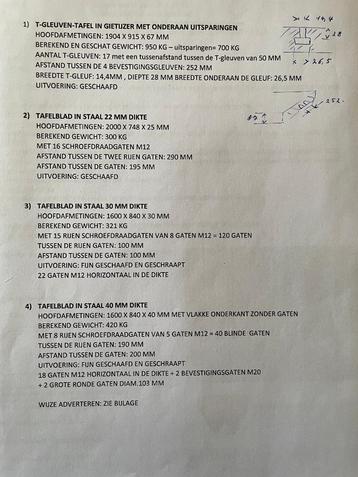 1) T-GLEUVEN-TAFEL IN GIETIJZER MET ONDERAAN UITSPARINGEN
HOOFDAFMETINGEN: 1904 X 915 X 67 MM
BEREKEND EN GESCHAT GEWICHT: 950 KG – uitsparingen= 700 KG
AANTAL T-GLEUVEN: 17 met een tussenafstand tussen de T-gleuven van 50 MM
AFSTAND TUSSEN DE 4 BEVESTIGINGSGLEUVEN: 252 MM
BREEDTE T-GLEUF: 14,4MM , DIEPTE 28 MM BREEDTE ONDERAAN DE GLEUF: 26,5 MM
UITVOERING: GESCHAAFD
14,4
28
26,5
252
2) TAFELBLAD IN STAAL 22 MM DIKTE
HOOFDAFMETINGEN: 2000 X 748 X 25 MM
BEREKEND GEWICHT: 300 KG
MET 16 SCHROEFDRAADGATEN M12
AFSTAND TUSSEN DE TWEE RIJEN GATEN: 290 MM
AFSTAND TUSSEN DE GATEN: 195 MM
UITVOERING: GESCHAAFD
3) TAFELBLAD IN STAAL 30 MM DIKTE
HOOFDAFMETINGEN: 1600 X 840 X 30 MM
BEREKEND GEWICHT: 321 KG
MET 15 RIJEN SCHROEFDRAADGATEN VAN 8 GATEN M12 = 120 GATEN
TUSSEN DE RIJEN GATEN: 100 MM
AFSTAND TUSSEN DE GATEN: 100 MM
UITVOERING: FIJN GESCHAAFD EN GESCHRAAPT
22 GATEN M12 HORIZONTAAL IN DE DIKTE
4) TAFELBLAD IN STAAL 40 MM DIKTE
HOOFDAFMETINGEN: 1600 X 840 X 40 MM MET VLAKKE ONDERKANT ZONDER GATEN
BEREKEND GEWICHT: 420 KG
MET 8 RIJEN SCHROEFDRAADGATEN VAN 5 GATEN M12 = 40 BLINDE GATEN
TUSSEN DE RIJEN GATEN: 190 MM
AFSTAND TUSSEN DE GATEN: 200 MM
UITVOERING: FIJN GESCHAAFD EN GESCHRAAPT
18 GATEN M12 HORIZONTAAL IN DE DIKTE + 2 BEVESTIGINGSGATEN M20
+ 2 GROTE RONDE GATEN DIAM.103 MM
WIJZE ADVERTEREN: ZIE BIJLAGE